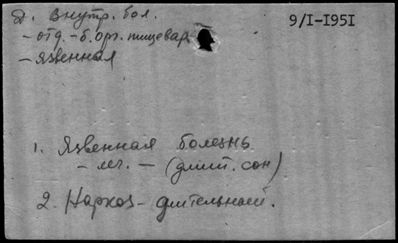 Д. Внутр. бол.
9/I-I95I
- отд. - б. орг. пищевар.
- язвенная
1. Язвенная болезнь
- леч. - (длит. сон)
2. Наркоз - длительный.